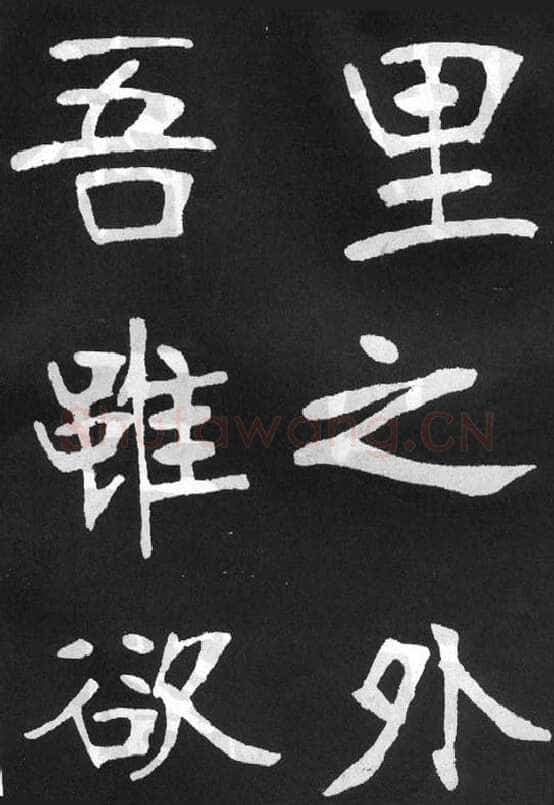 里之外
吾雖欲
Shufawang.CN